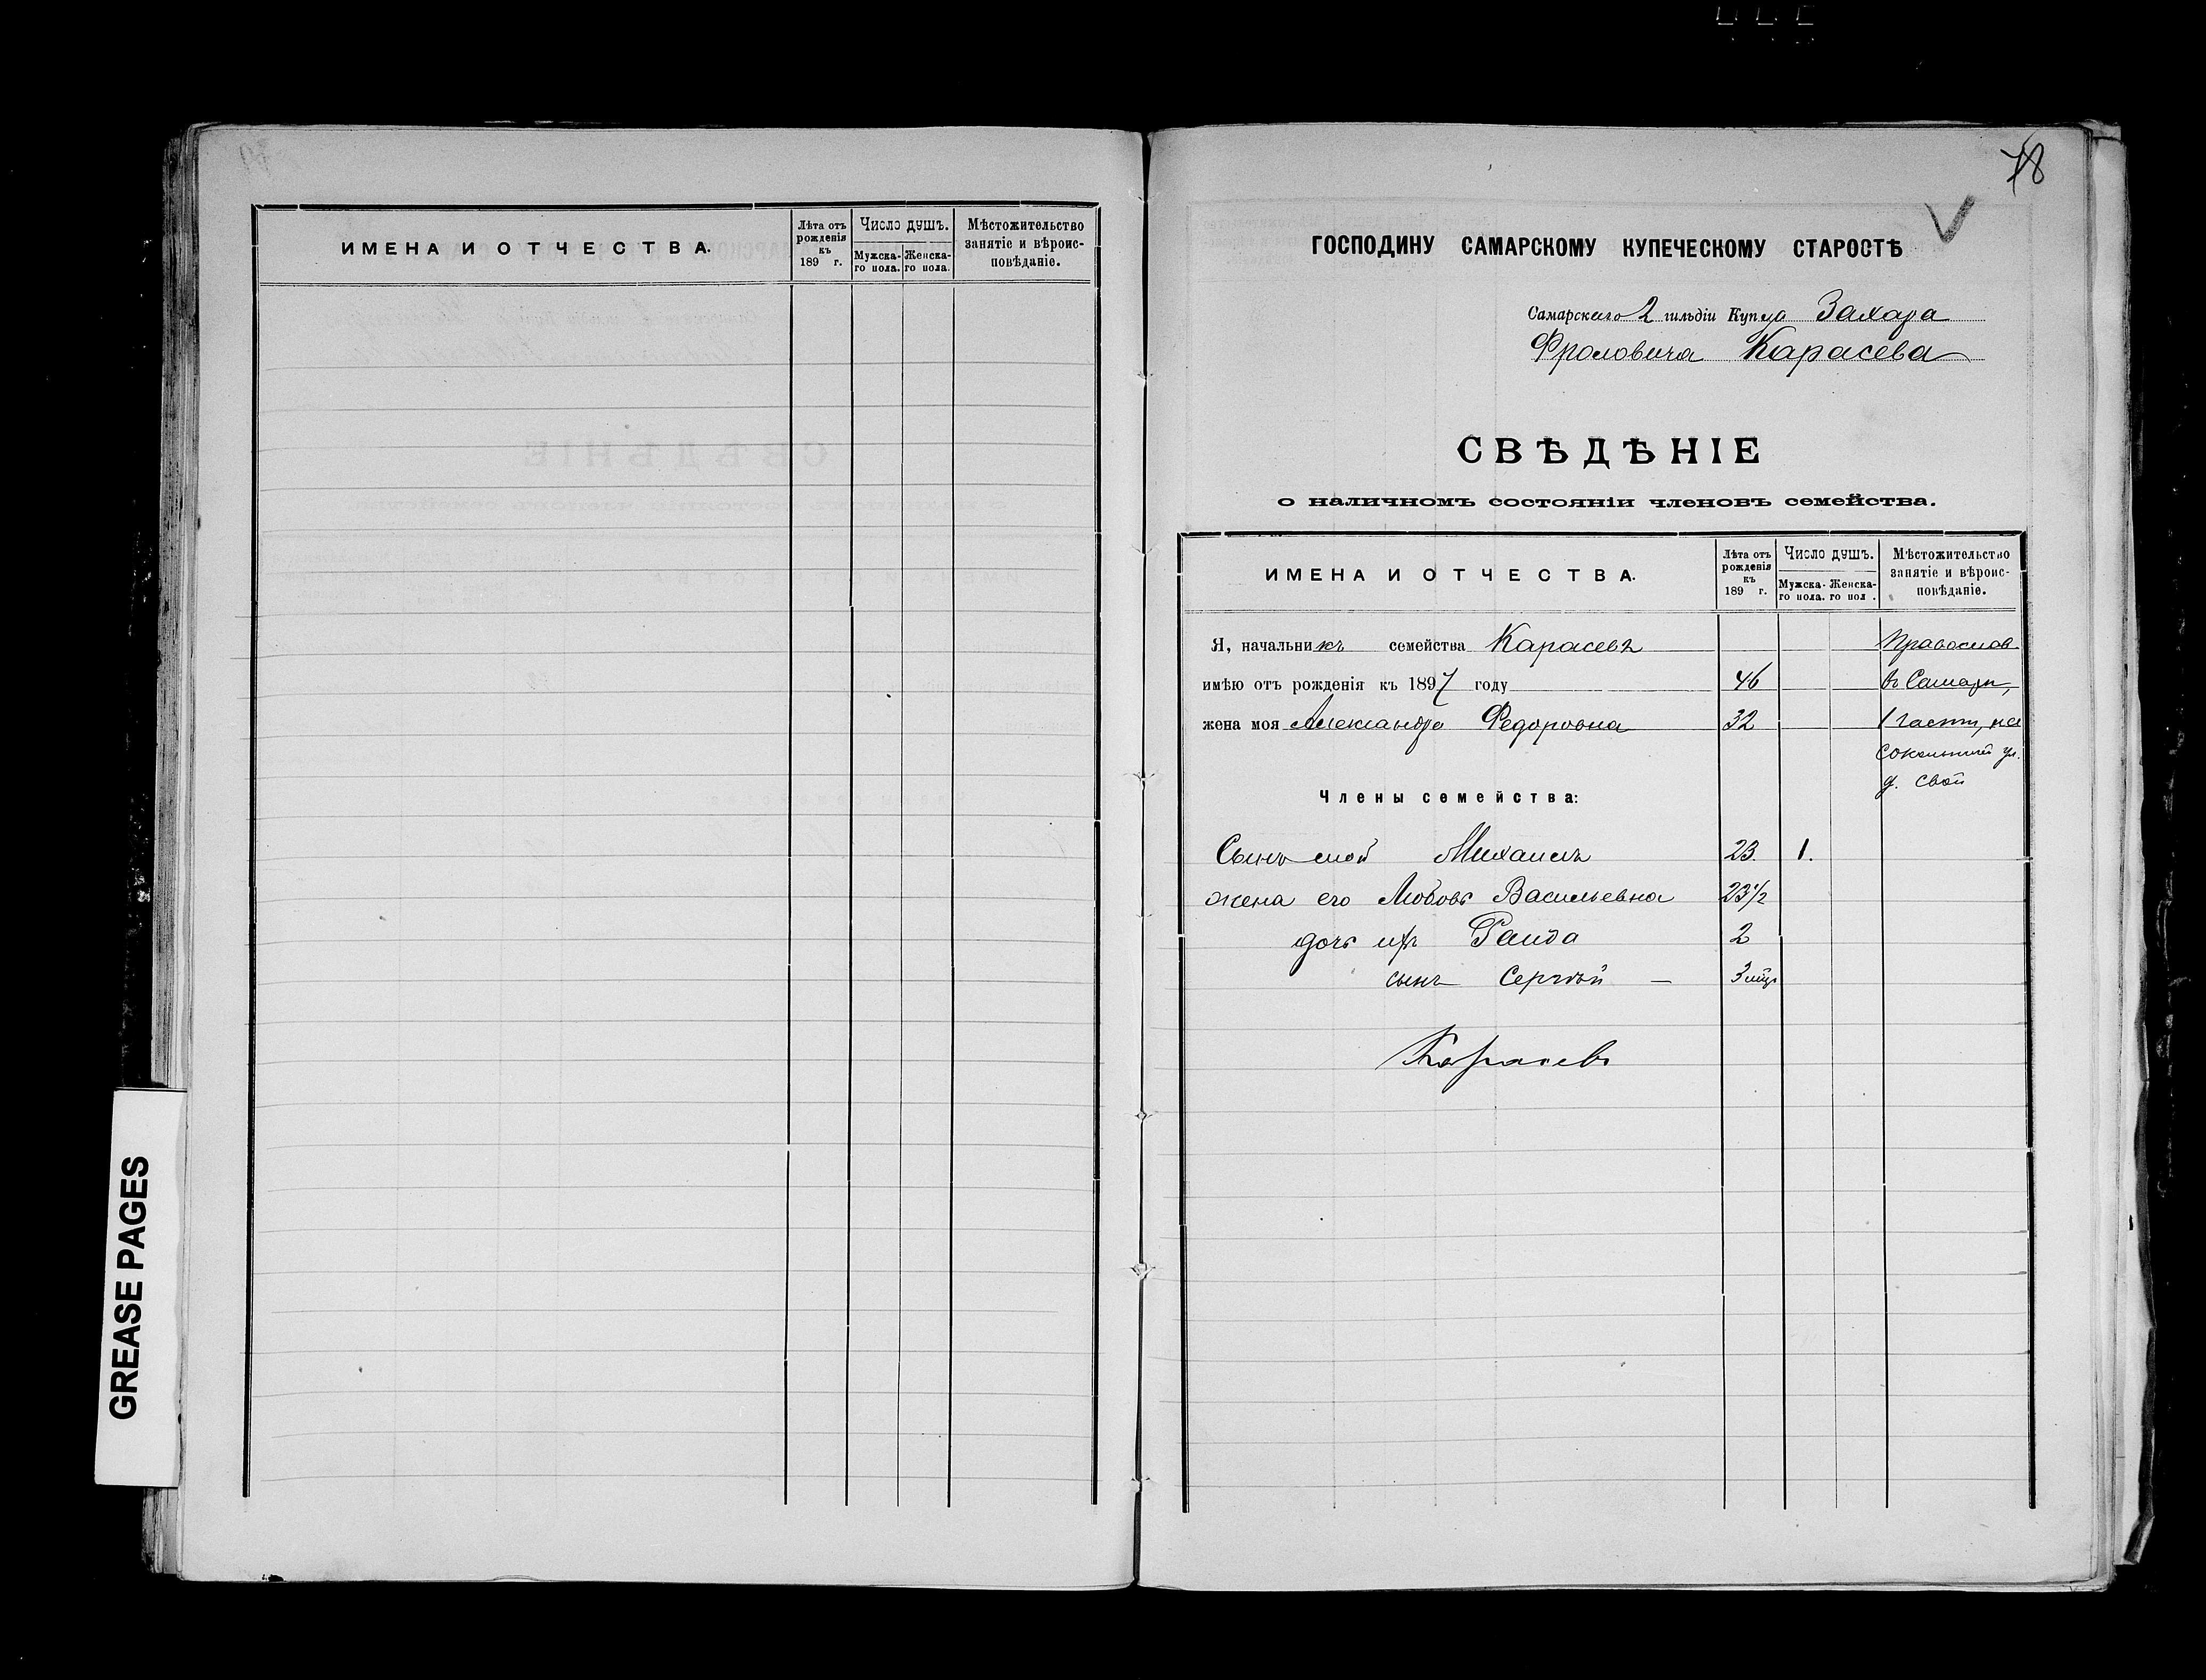 ИМЕНА И ОТЧЕСТВА.
Лѣта отъ рожденія къ 189 г.
Число душъ.
Мужска-го пола.
Женска-го пола.
Мѣстожительство занятіе и вѣроис-повѣданіе.
78
V
ГОСПОДИНУ САМАРСКОМУ КУПЕЧЕСКОМУ СТАРОСТѢ
Самарскаго 2 гильдіи Купца Захара
Фроловича Карасева
СВѢДѢНІЕ
о наличномъ состояніи членовъ семейства.
ИМЕНА И ОТЧЕСТВА.
Лѣта отъ рожденія къ 189 г.
Число душъ.
Мужска-го пола.
Женска-го пол .
Мѣстожительство занятіе и вѣроис-повѣданіе.
Я, начальникъ семейства Карасевъ Православ.
имѣю отъ рожденія къ 1897 году 46 въ Самарѣ,
жена моя Александра Федоровна 32 1 части, на
ул.
д. свой
Члены семейства:
Сынъ мой Михаилъ 23. 1.
жена его Любовь Васильевна 23 1/2
дочь ихъ Раида 2
сынъ Сергѣй — 3 мѣс
Карасевъ
GREASE PAGES